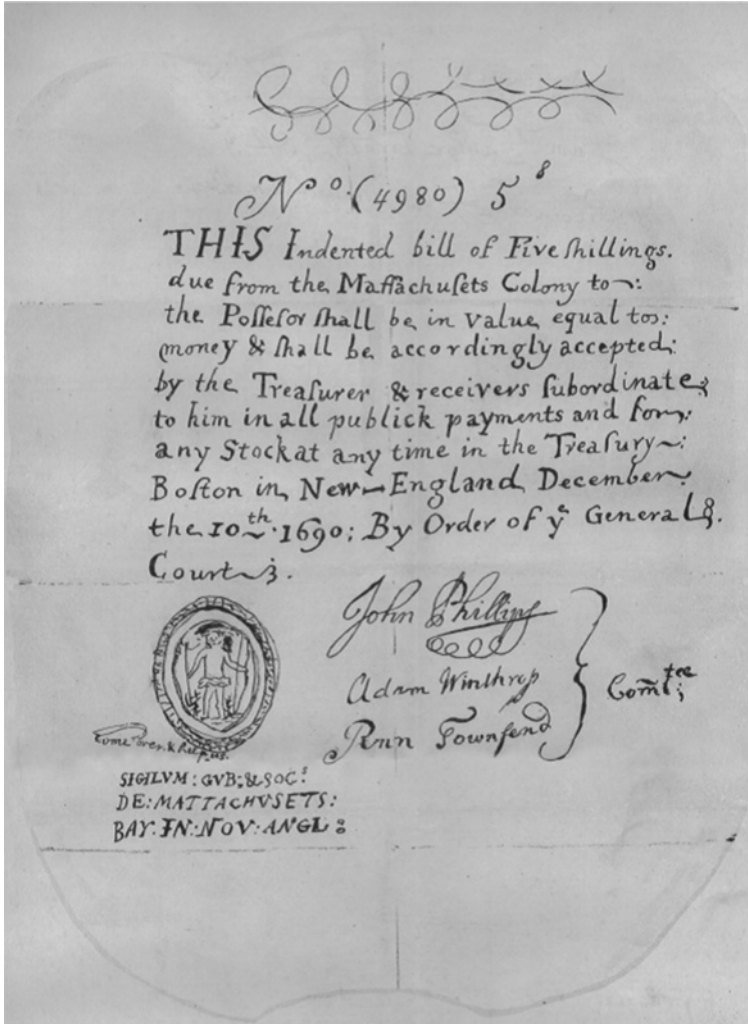 Nº (4980) 5ˢ
THIS Indented bill of Five ſhillings.
due from the Maſſachuſets Colony to:
the Poſſeſor ſhall be in value equal to:
money & ſhall be accordingly accepted:
by the Treaſurer & receivers ſubordinate
to him in all publick payments and for:
any Stock at any time in the Treaſury:
Boſton in New-England December
the 10th. 1690: By Order of yᵉ General
Court.
John Phillips
Adam Winthrop
Penn Townſend
Com̃tee
Come over & help us.
SIGILVM: GVB: & SOC:
DE: MATTACHVSETS:
BAY. IN: NOV: ANGL: